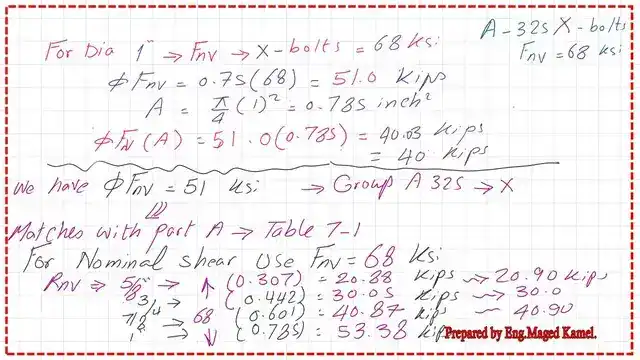 A-325 X-bolts
Fnv = 68 ksi
For Dia 1" → Fnv → X-bolts = 68 ksi
φFnv = 0.75(68) = 51.0 kips
A = π/4 (1)² = 0.785 inch²
φFN(A) = 51.0(0.785) = 40.03 kips
= 40 kips
we have φFnv = 51 ksi → Group A 325 → X
Matches with part A → Table 7-1
For Nominal shear Use Fnv = 68 ksi
Rnv ⇒ 5/8" → ↑ (0.307) = 20.88 kips ~ 20.90 kips
3/4" → (0.442) = 30.05 kips ~ 30.0
7/8" → 68 (0.601) = 40.87 kips ~ 40.90
1" ↓ (0.785) = 53.38 kips
Prepared by Eng.Maged Kamel.